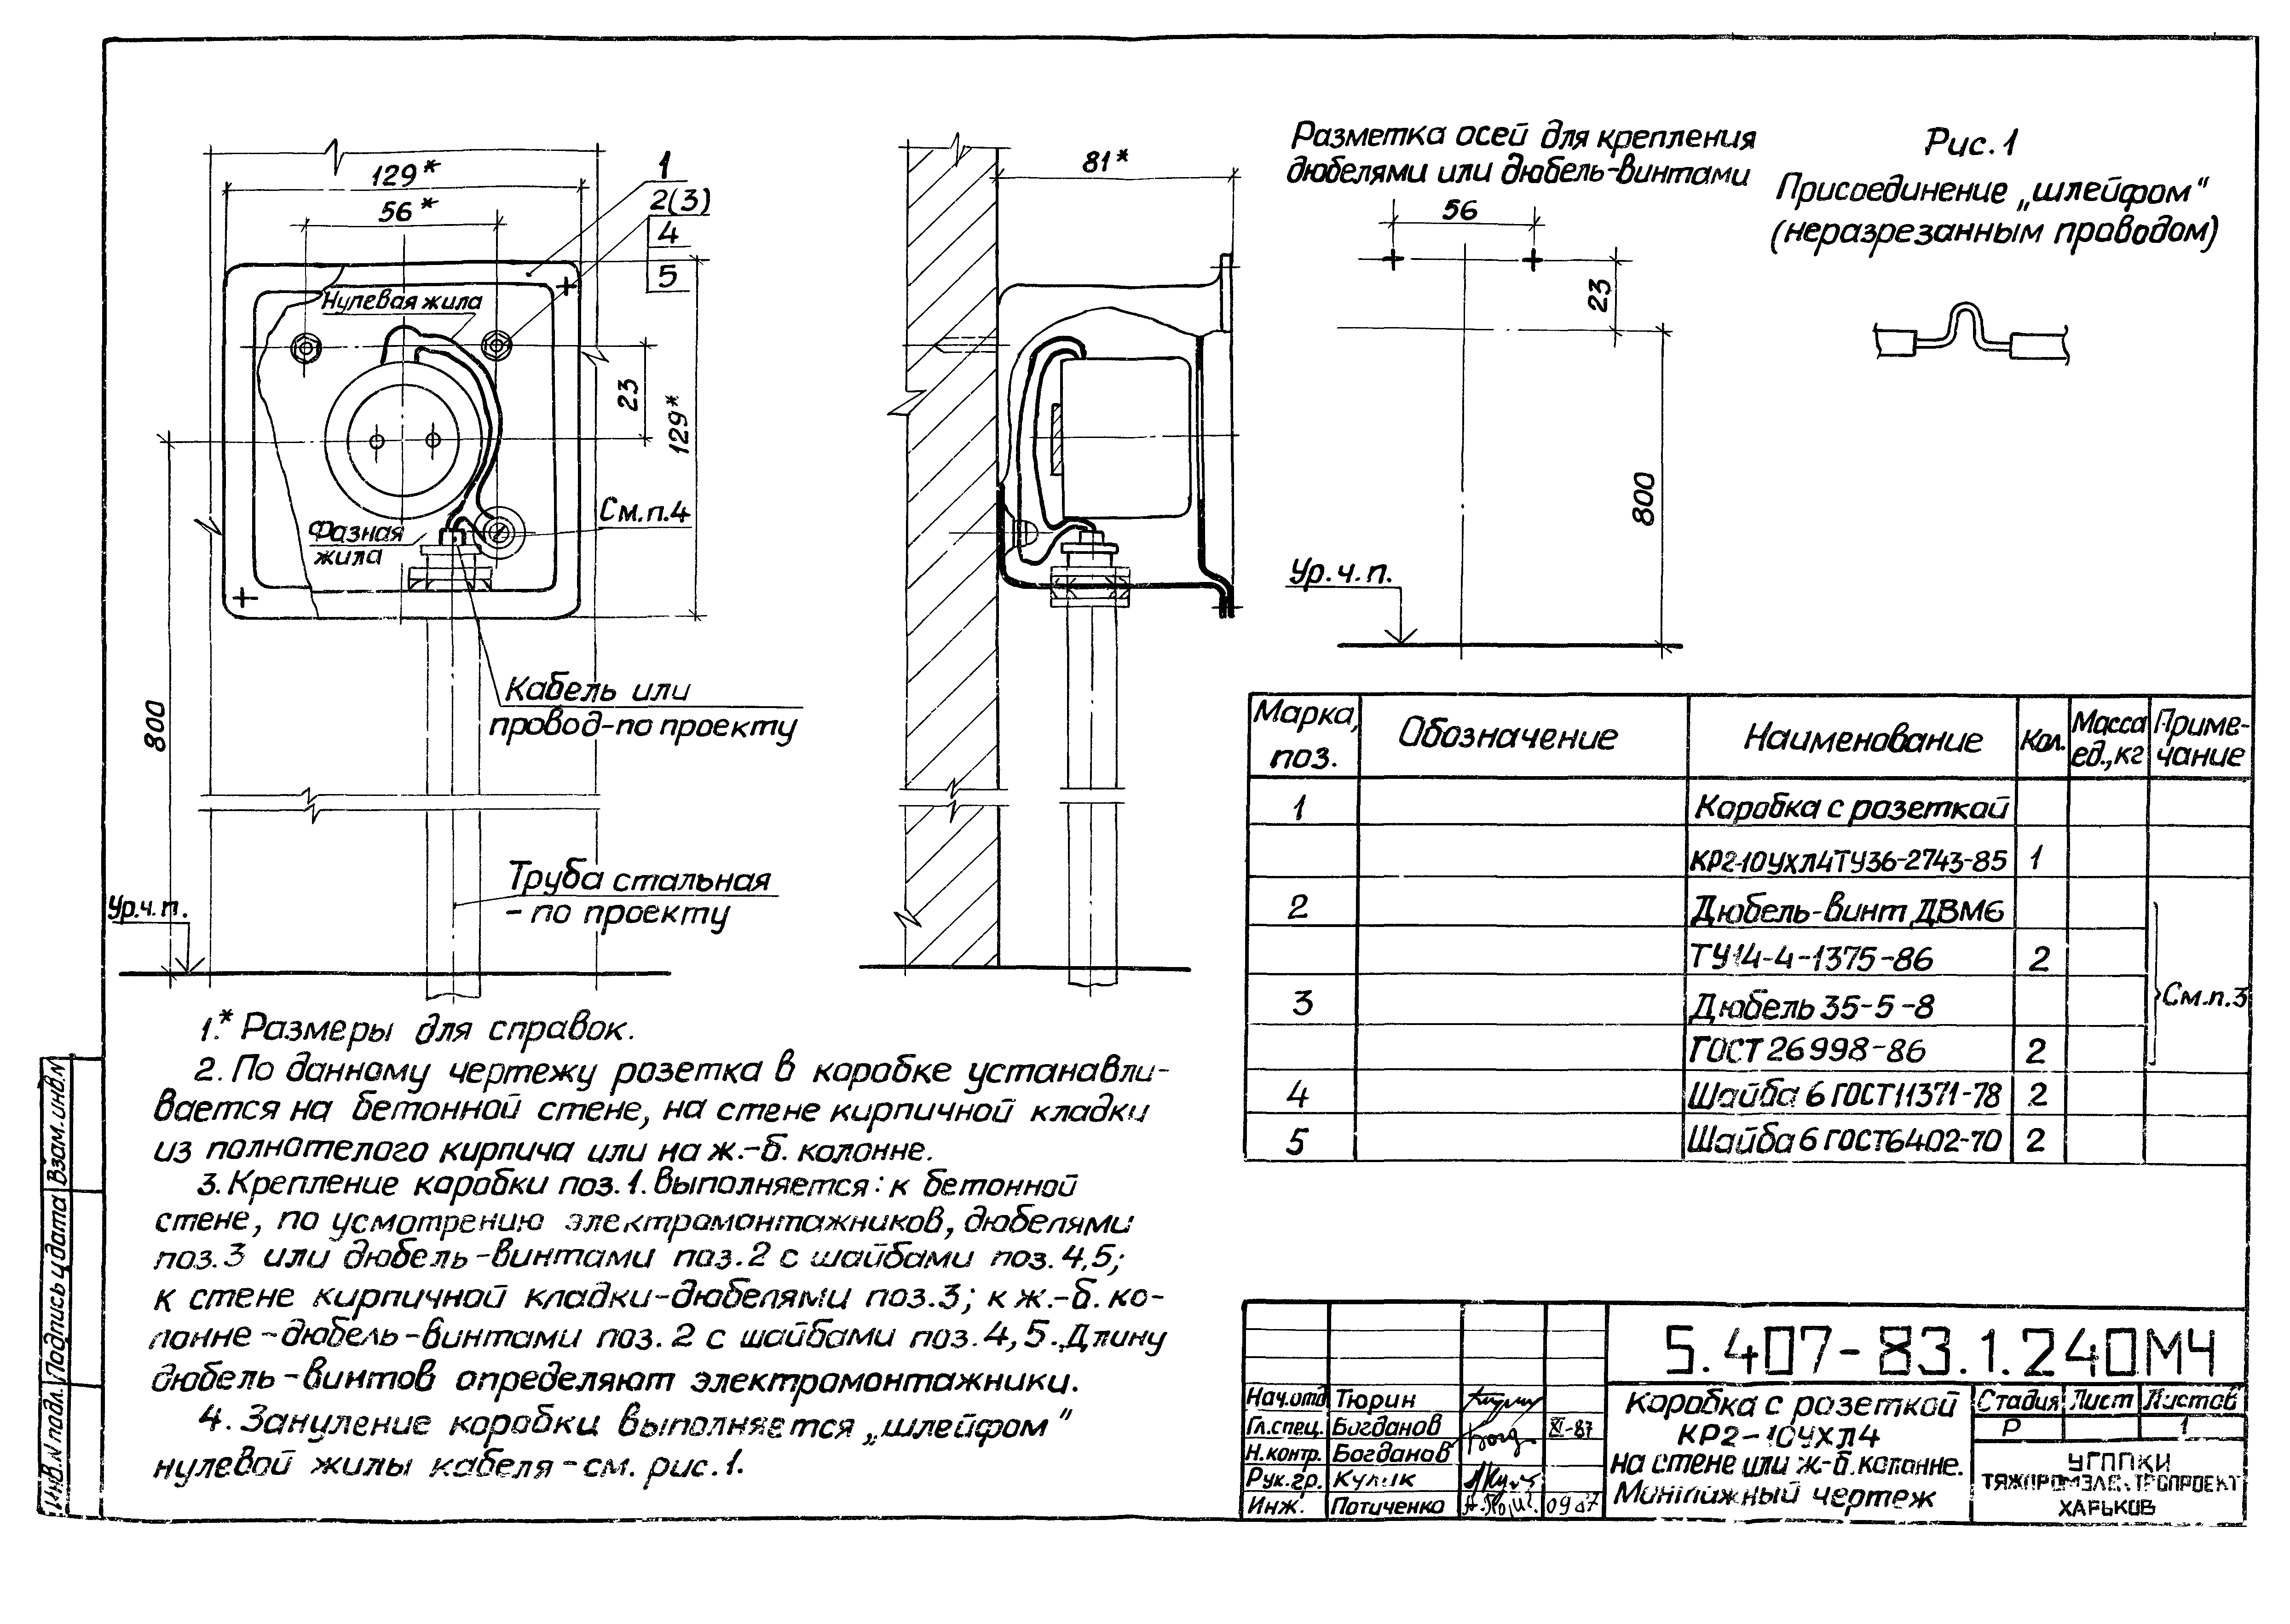 129*
56*
1
2(3)
4
5
Нулевая жила
23
129*
См.п.4
Фазная
жила
800
Кабель или
провод-по проекту
Труба стальная
-по проекту
Ур.ч.п.
81*
Разметка осей для крепления
дюбелями или дюбель-винтами
56
23
800
Ур.ч.п.
Рис.1
Присоединение „шлейфом“
(неразрезанным проводом)
Марка, поз. Обозначение Наименование Кол. Масса ед.,кг Примечание
1 Коробка с розеткой
КР2-10УХЛ4ТУ36-2743-85 1
2 Дюбель-винт ДВМ6
ТУ14-4-1375-86 2
См.п.3
3 Дюбель 35-5-8
ГОСТ 26998-86 2
4 Шайба 6 ГОСТ11371-78 2
5 Шайба 6 ГОСТ6402-70 2
1.* Размеры для справок.
2. По данному чертежу розетка в коробке устанавли-
вается на бетонной стене, на стене кирпичной кладки
из полнотелого кирпича или на ж.-б. колонне.
3. Крепление коробки поз.1. выполняется: к бетонной
стене, по усмотрению электромонтажников, дюбелями
поз.3 или дюбель-винтами поз.2 с шайбами поз.4,5;
к стене кирпичной кладки-дюбелями поз.3; к ж.-б. ко-
лонне-дюбель-винтами поз.2 с шайбами поз.4,5. Длину
дюбель-винтов определяют электромонтажники.
4. Зануление коробки выполняется „шлейфом“
нулевой жилы кабеля-см. рис.1.
Инв.N подл. Подпись и дата Взам.инв.N
5.407-83.1.240МЧ
Нач.отд Тюрин
Гл.спец. Богданов XI-87
Н.контр. Богданов
Рук.гр. Кулик
Инж. Потиченко 09 87
Коробка с розеткой
КР2-10УХЛ4
на стене или ж-б.колонне.
Монтажный чертеж
Стадия Лист Листов
Р 1
УГППКИ
ТЯЖПРОМЭЛЕКТРОПРОЕКТ
ХАРЬКОВ